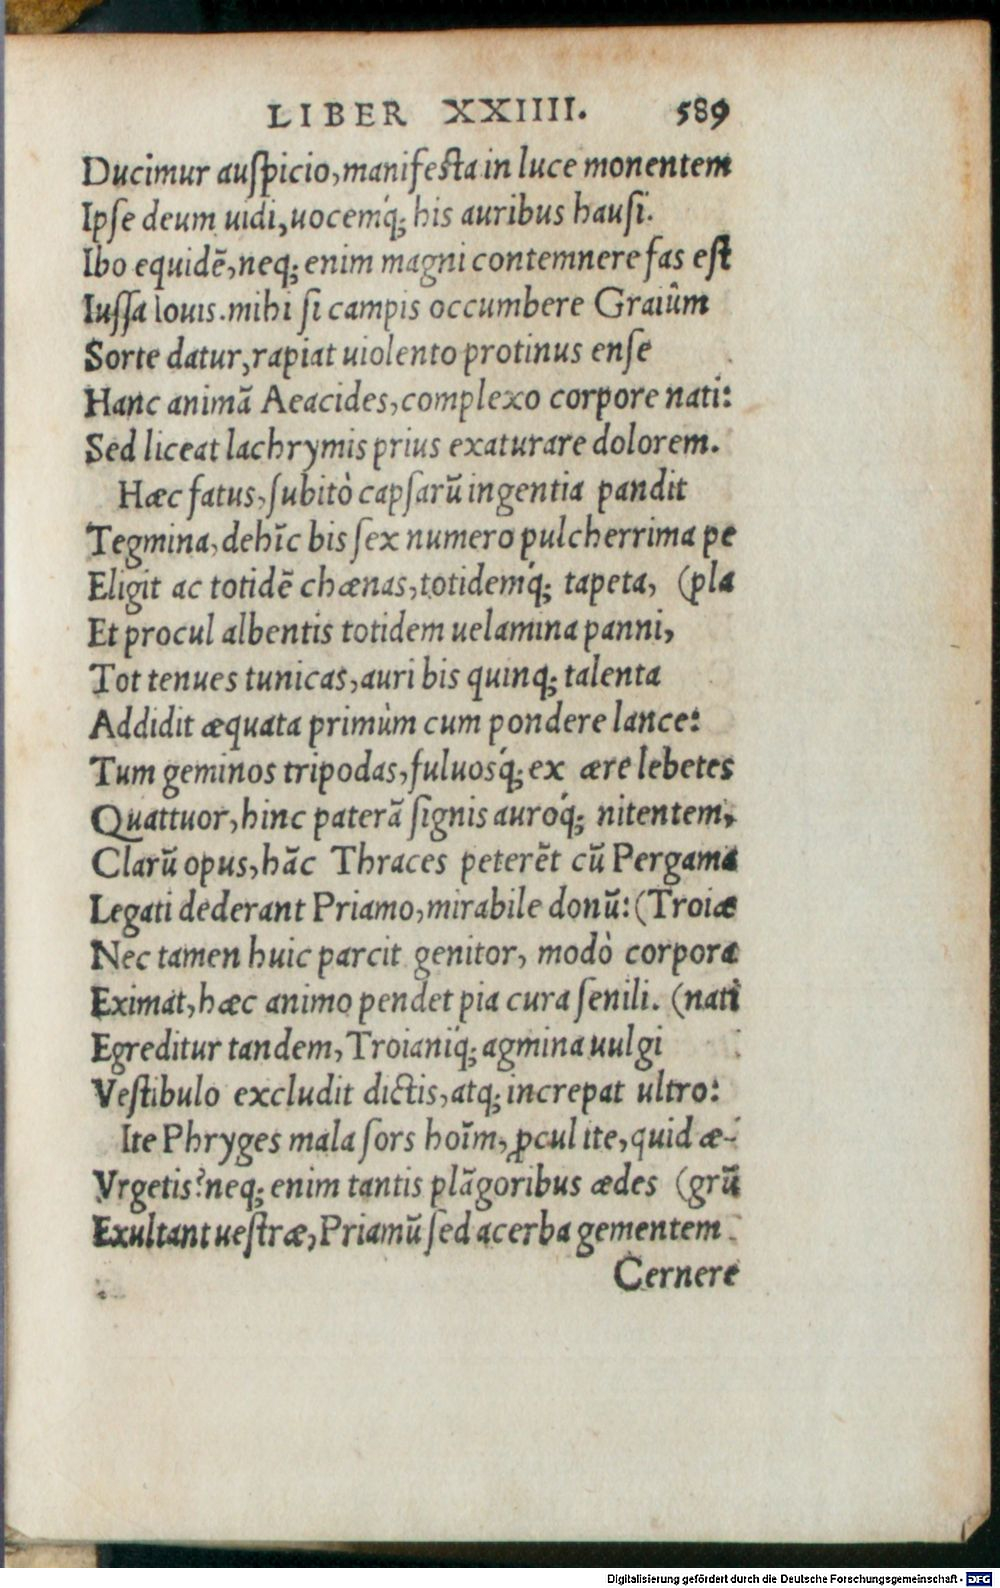 LIBER XXIIII. 589
Ducimur auſpicio, manifeſta in luce monentem
Ipſe deum uidi, uocemq́; his auribus hauſi.
Ibo equidē, neq; enim magni contemnere fas eſt
Iuſſa Iouis. mihi ſi campis occumbere Graiûm
Sorte datur, rapiat uiolento protinus enſe
Hanc animā Aeacides, complexo corpore nati:
Sed liceat lachrymis prius exaturare dolorem.
Hæc fatus, ſubitò capſarū ingentia pandit
Tegmina, dehīc bis ſex numero pulcherrima pe
Eligit ac totidē chænas, totidemq́; tapeta, (pla
Et procul albentis totidem uelamina panni,
Tot tenues tunicas, auri bis quinq; talenta
Addidit æquata primùm cum pondere lance:
Tum geminos tripodas, fuluosq́; ex ære lebetes
Quattuor, hinc paterā ſignis auroq́; nitentem,
Clarū opus, hāc Thraces peterēt cū Pergama
Legati dederant Priamo, mirabile donū: (Troiæ
Nec tamen huic parcit genitor, modò corpora
Eximat, hæc animo pendet pia cura ſenili. (nati
Egreditur tandem, Troianiq́; agmina uulgi
Veſtibulo excludit dictis, atq; increpat ultro:
Ite Phryges mala ſors hoīm, ꝓcul ite, quid æ-
Vrgetis? neq; enim tantis plāgoribus ædes (grū
Exultant ueſtræ, Priamū ſed acerba gementem
Cernere
Digitalisierung gefördert durch die Deutsche Forschungsgemeinschaft - DFG